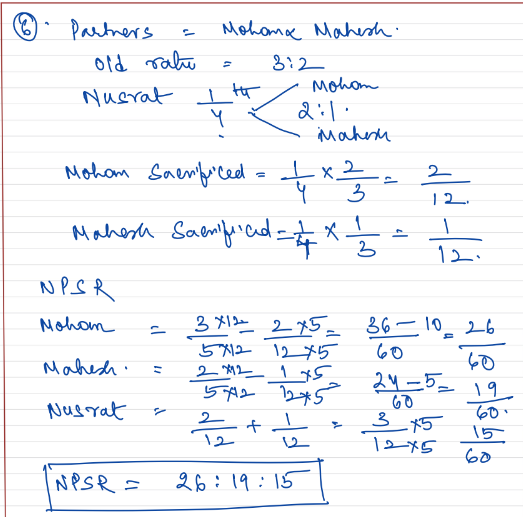 ⑥. Partners = Mohan & Mahesh.
Old ratio = 3:2
Nusrat 1/4 th < Mohan 2:1. Mahesh
Mohan Sacrificed = 1/4 × 2/3 = 2/12.
Mahesh Sacrificed = 1/4 × 1/3 = 1/12.
NPSR
Mohan = 3×12/5×12 - 2×5/12×5 = 36-10/60 = 26/60
Mahesh. = 2×12/5×12 - 1×5/12×5 = 24-5/60 = 19/60.
Nusrat = 2/12 + 1/12 = 3×5/12×5 15/60
NPSR = 26:19:15